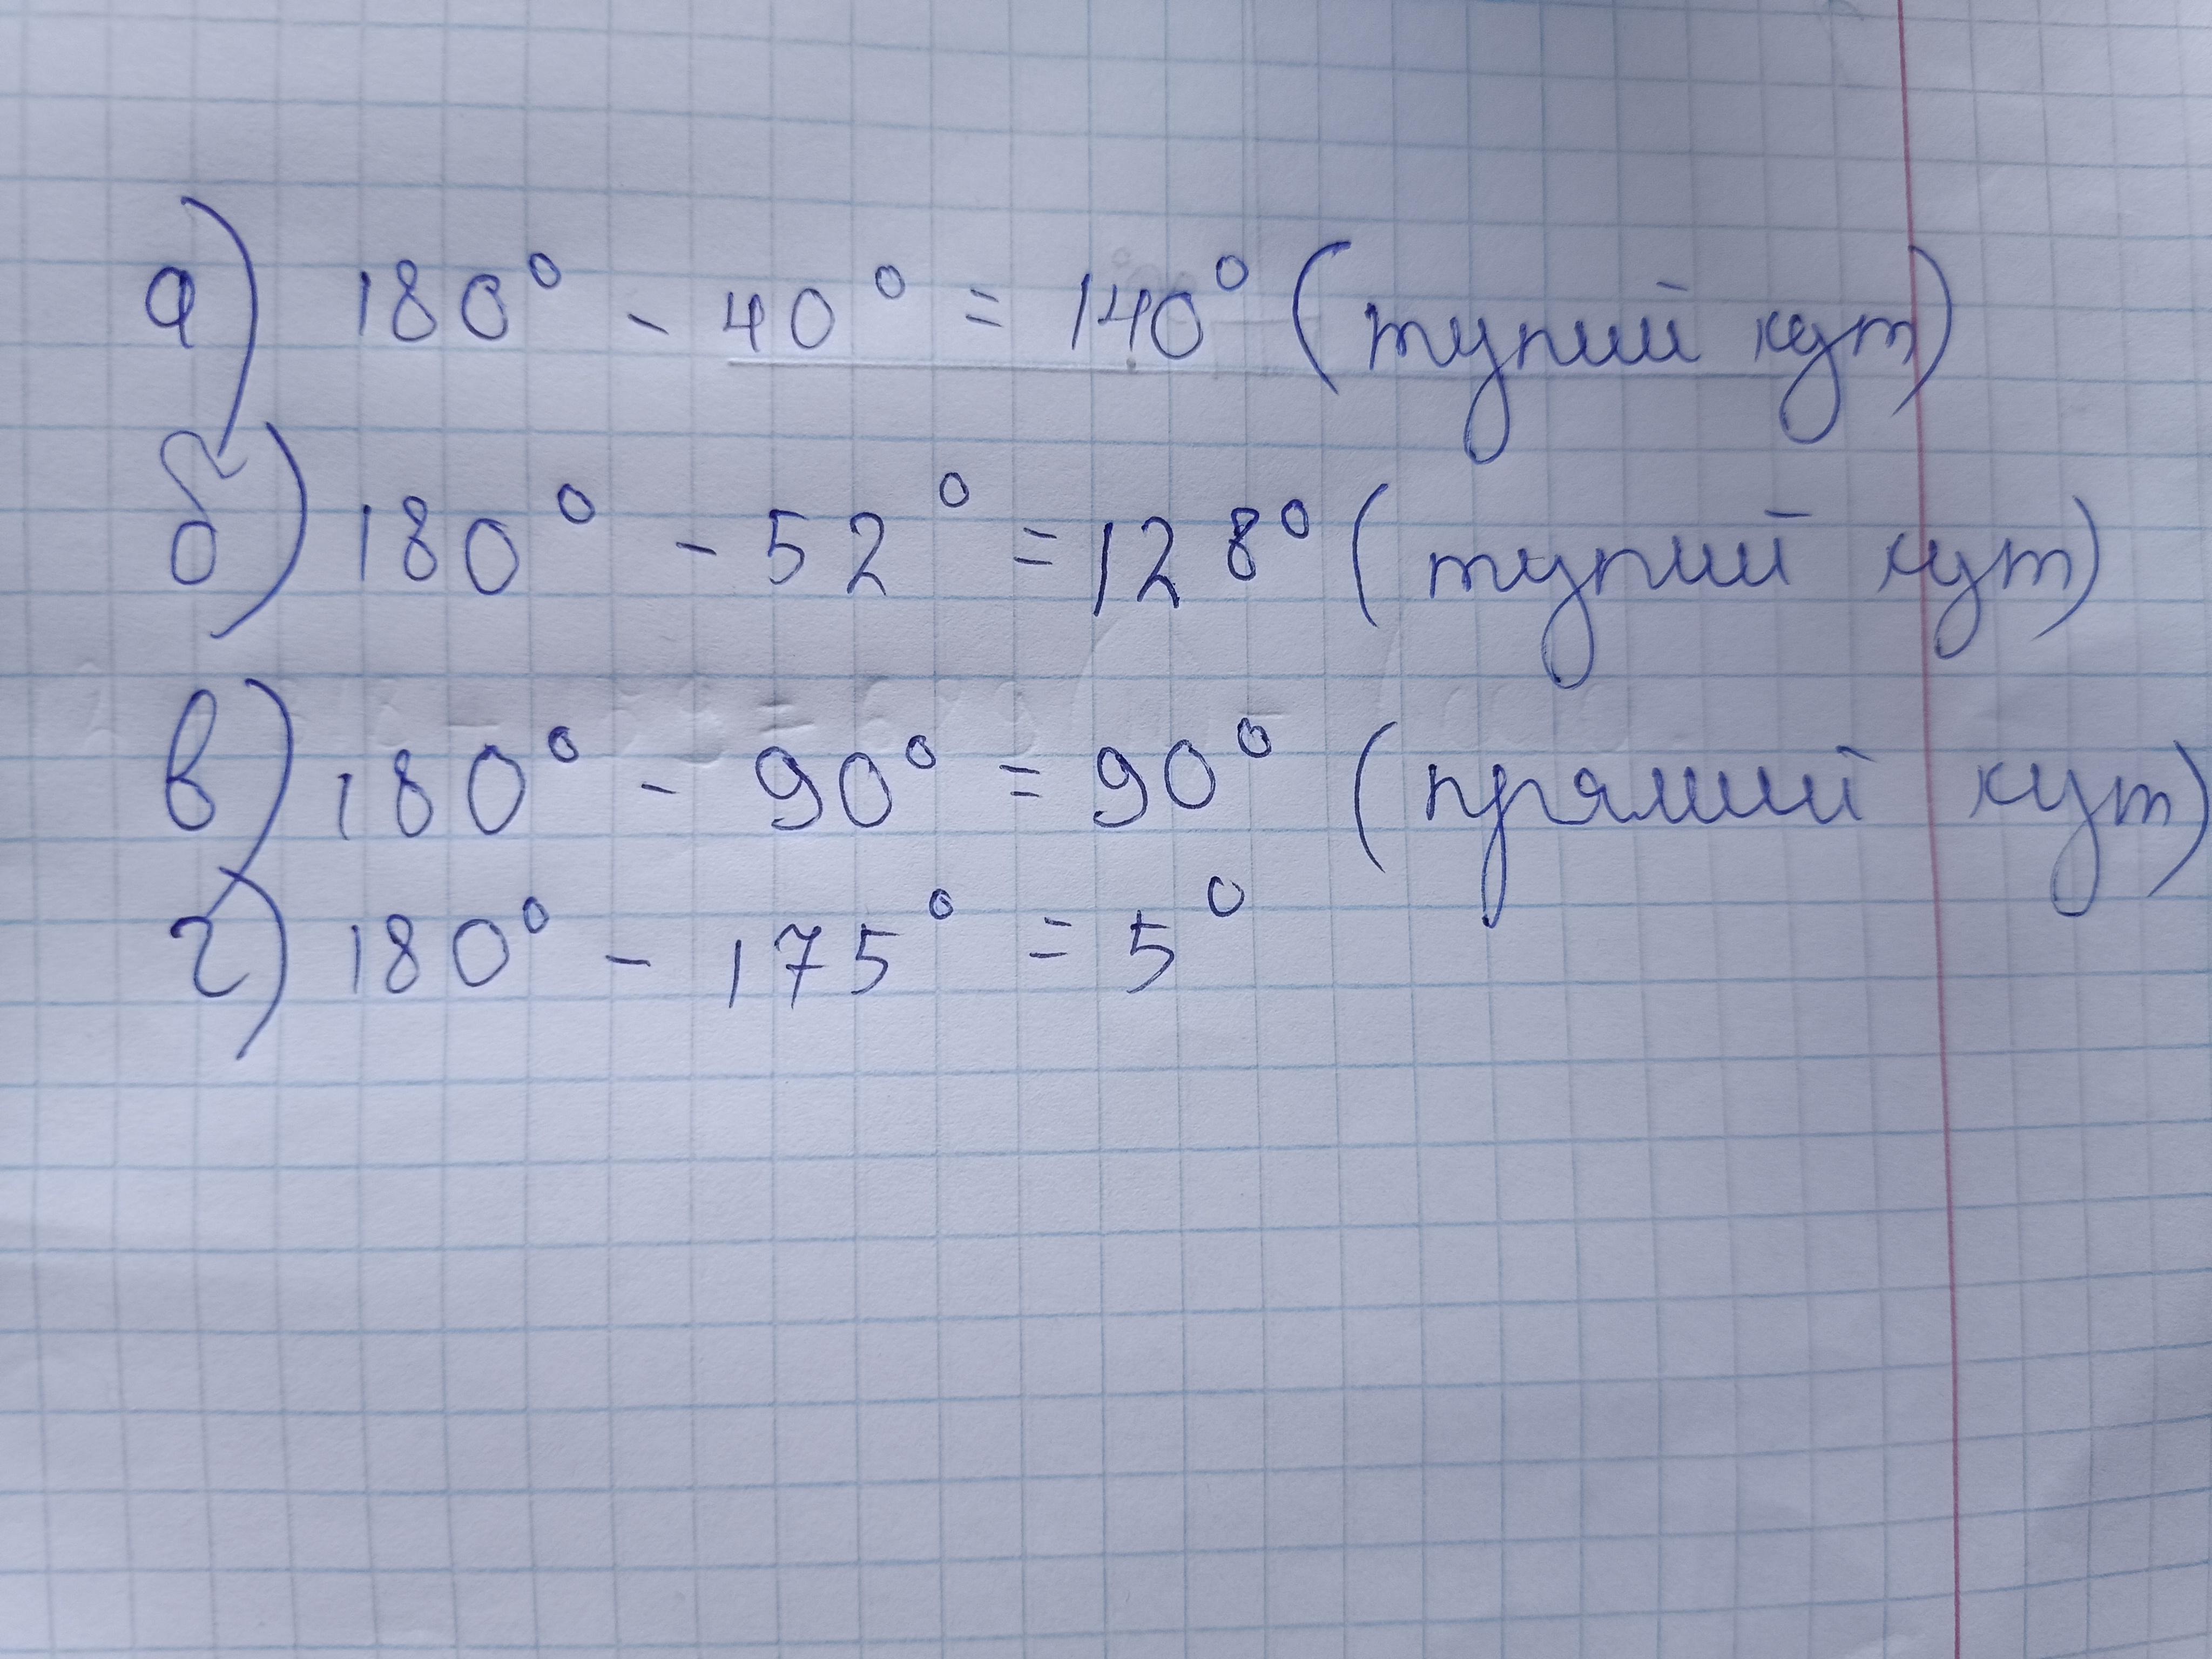 а) 180° - 40° = 140° (тупий кут)
б) 180° - 52° = 128° (тупий кут)
в) 180° - 90° = 90° (прямий кут)
г) 180° - 175° = 5°